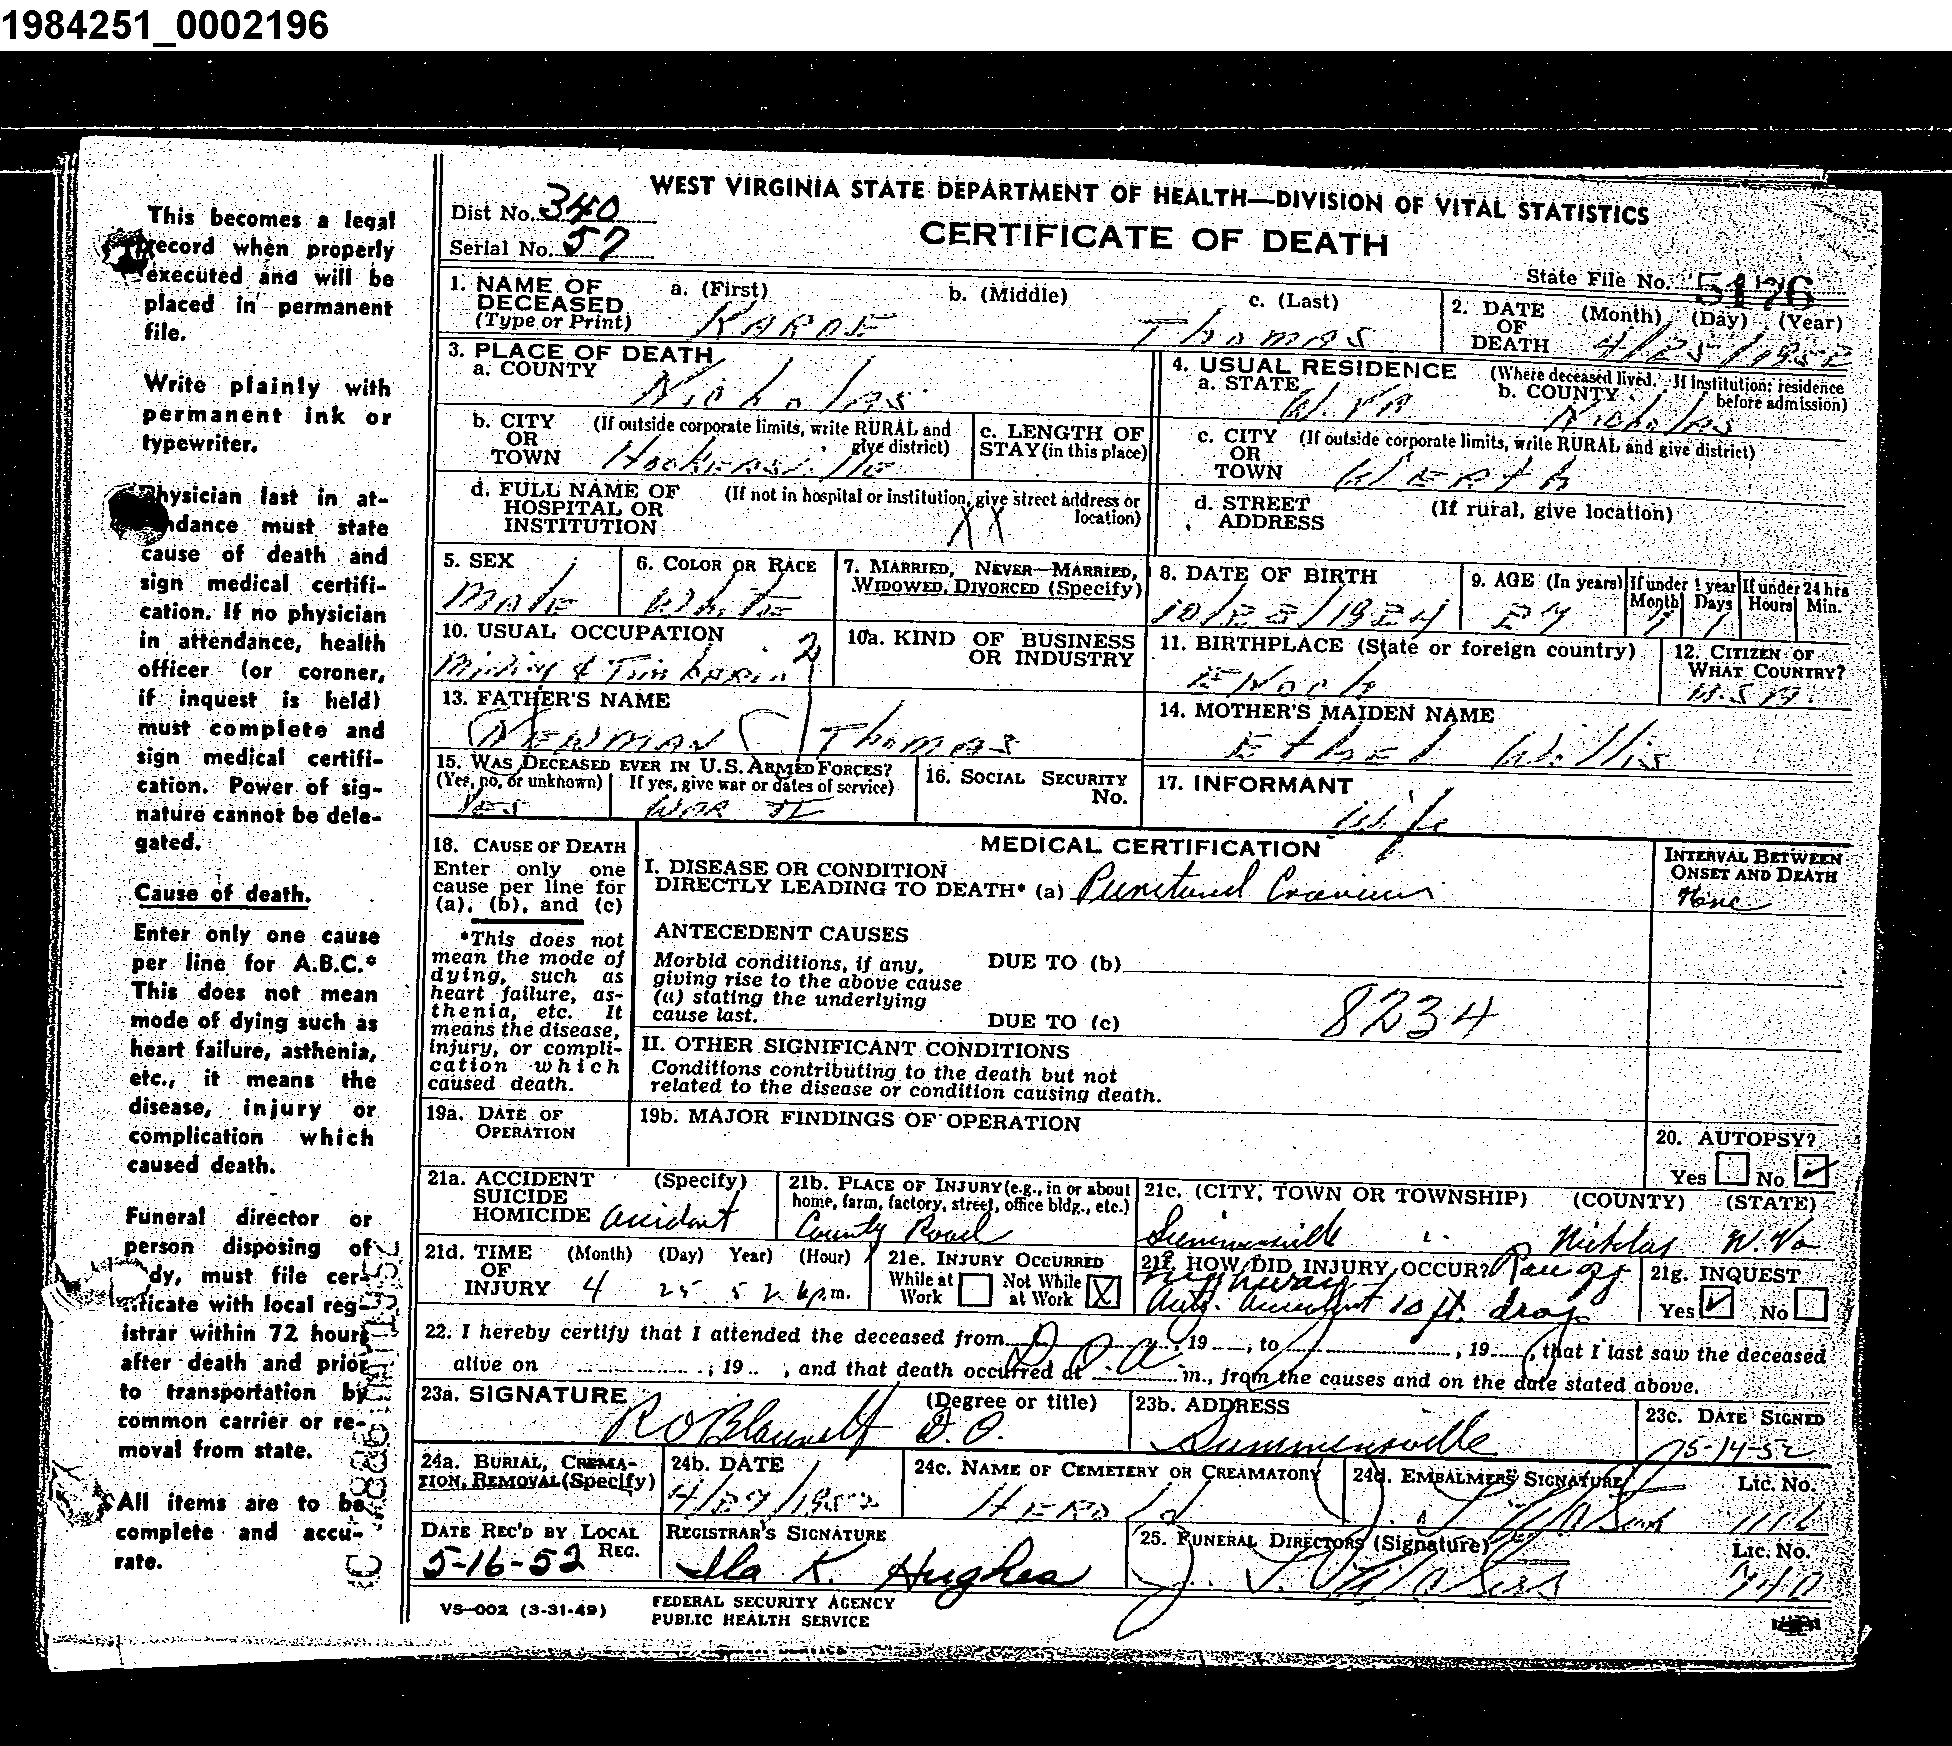 1984251_0002196
WEST VIRGINIA STATE DEPARTMENT OF HEALTH—DIVISION OF VITAL STATISTICS
CERTIFICATE OF DEATH
Dist No. 340
Serial No. 57
State File No. 5176
This becomes a legal
record when properly
executed and will be
placed in permanent
file.
Write plainly with
permanent ink or
typewriter.
Physician last in at-
tendance must state
cause of death and
sign medical certifi-
cation. If no physician
in attendance, health
officer (or coroner,
if inquest is held)
must complete and
sign medical certifi-
cation. Power of sig-
nature cannot be dele-
gated.
Cause of death.
Enter only one cause
per line for A.B.C.*
This does not mean
mode of dying such as
heart failure, asthenia,
etc., it means the
disease, injury or
complication which
caused death.
Funeral director or
person disposing of
body, must file cer-
tificate with local reg-
istrar within 72 hours
after death and prior
to transportation by
common carrier or re-
moval from state.
All items are to be
complete and accu-
rate.
1. NAME OF DECEASED (Type or Print) a. (First) b. (Middle) c. (Last) Thomas
2. DATE OF DEATH (Month) (Day) (Year) 4/25/1952
3. PLACE OF DEATH
a. COUNTY Nicholas
b. CITY OR TOWN (If outside corporate limits, write RURAL and give district) Hookersville
c. LENGTH OF STAY (in this place)
d. FULL NAME OF HOSPITAL OR INSTITUTION (If not in hospital or institution, give street address or location) XX
4. USUAL RESIDENCE (Where deceased lived. If institution: residence before admission)
a. STATE W. VA
b. COUNTY Nicholas
c. CITY OR TOWN (If outside corporate limits, write RURAL and give district) Werth
d. STREET ADDRESS (If rural, give location)
5. SEX Male
6. COLOR OR RACE White
7. MARRIED, NEVER MARRIED, WIDOWED, DIVORCED (Specify)
8. DATE OF BIRTH
9. AGE (In years) 27 If under 1 year Month Days If under 24 hrs Hours Min.
10. USUAL OCCUPATION Mining &
10a. KIND OF BUSINESS OR INDUSTRY
11. BIRTHPLACE (State or foreign country) Enoch
12. CITIZEN OF WHAT COUNTRY? U.S.A.
13. FATHER'S NAME Newman Thomas
14. MOTHER'S MAIDEN NAME Ethel Willis
15. WAS DECEASED EVER IN U.S. ARMED FORCES? (Yes, no, or unknown) Yes If yes, give war or dates of service) War II
16. SOCIAL SECURITY No.
17. INFORMANT Wife
MEDICAL CERTIFICATION
18. CAUSE OF DEATH
Enter only one cause per line for (a), (b), and (c)
*This does not mean the mode of dying, such as heart failure, asthenia, etc. It means the disease, injury, or complication which caused death.
I. DISEASE OR CONDITION DIRECTLY LEADING TO DEATH* (a) Punctured Cranium
INTERVAL BETWEEN ONSET AND DEATH
ANTECEDENT CAUSES
Morbid conditions, if any, giving rise to the above cause (a) stating the underlying cause last.
DUE TO (b)
DUE TO (c)
8234
II. OTHER SIGNIFICANT CONDITIONS
Conditions contributing to the death but not related to the disease or condition causing death.
19a. DATE OF OPERATION
19b. MAJOR FINDINGS OF OPERATION
20. AUTOPSY? Yes No ✓
21a. ACCIDENT SUICIDE HOMICIDE (Specify) Accident
21b. PLACE OF INJURY (e.g., in or about home, farm, factory, street, office bldg., etc.) County Road
21c. (CITY, TOWN OR TOWNSHIP) (COUNTY) (STATE) Summersville " Nicholas W. Va
21d. TIME OF INJURY (Month) (Day) Year) (Hour) 4 25 52 6 p.m.
21e. INJURY OCCURRED While at Work Not While at Work X
21f. HOW DID INJURY OCCUR? Ran off highway
Auto. Accident 10 ft. drop
21g. INQUEST Yes ✓ No
22. I hereby certify that I attended the deceased from D.O.A., 19 , to , 19 , that I last saw the deceased
alive on , 19 , and that death occurred at m., from the causes and on the date stated above.
23a. SIGNATURE (Degree or title) D.O.
23b. ADDRESS Summersville
23c. DATE SIGNED 5-14-52
24a. BURIAL, CREMATION, REMOVAL (Specify)
24b. DATE 4/27/1952
24c. NAME OF CEMETERY OR CREAMATORY
24d. EMBALMERS SIGNATURE Lic. No.
DATE REC'D BY LOCAL REG. 5-16-52
REGISTRAR'S SIGNATURE Ila K. Hughes
25. FUNERAL DIRECTORS (Signature) Lic. No. 740
VS-002 (3-31-49)
FEDERAL SECURITY AGENCY
PUBLIC HEALTH SERVICE